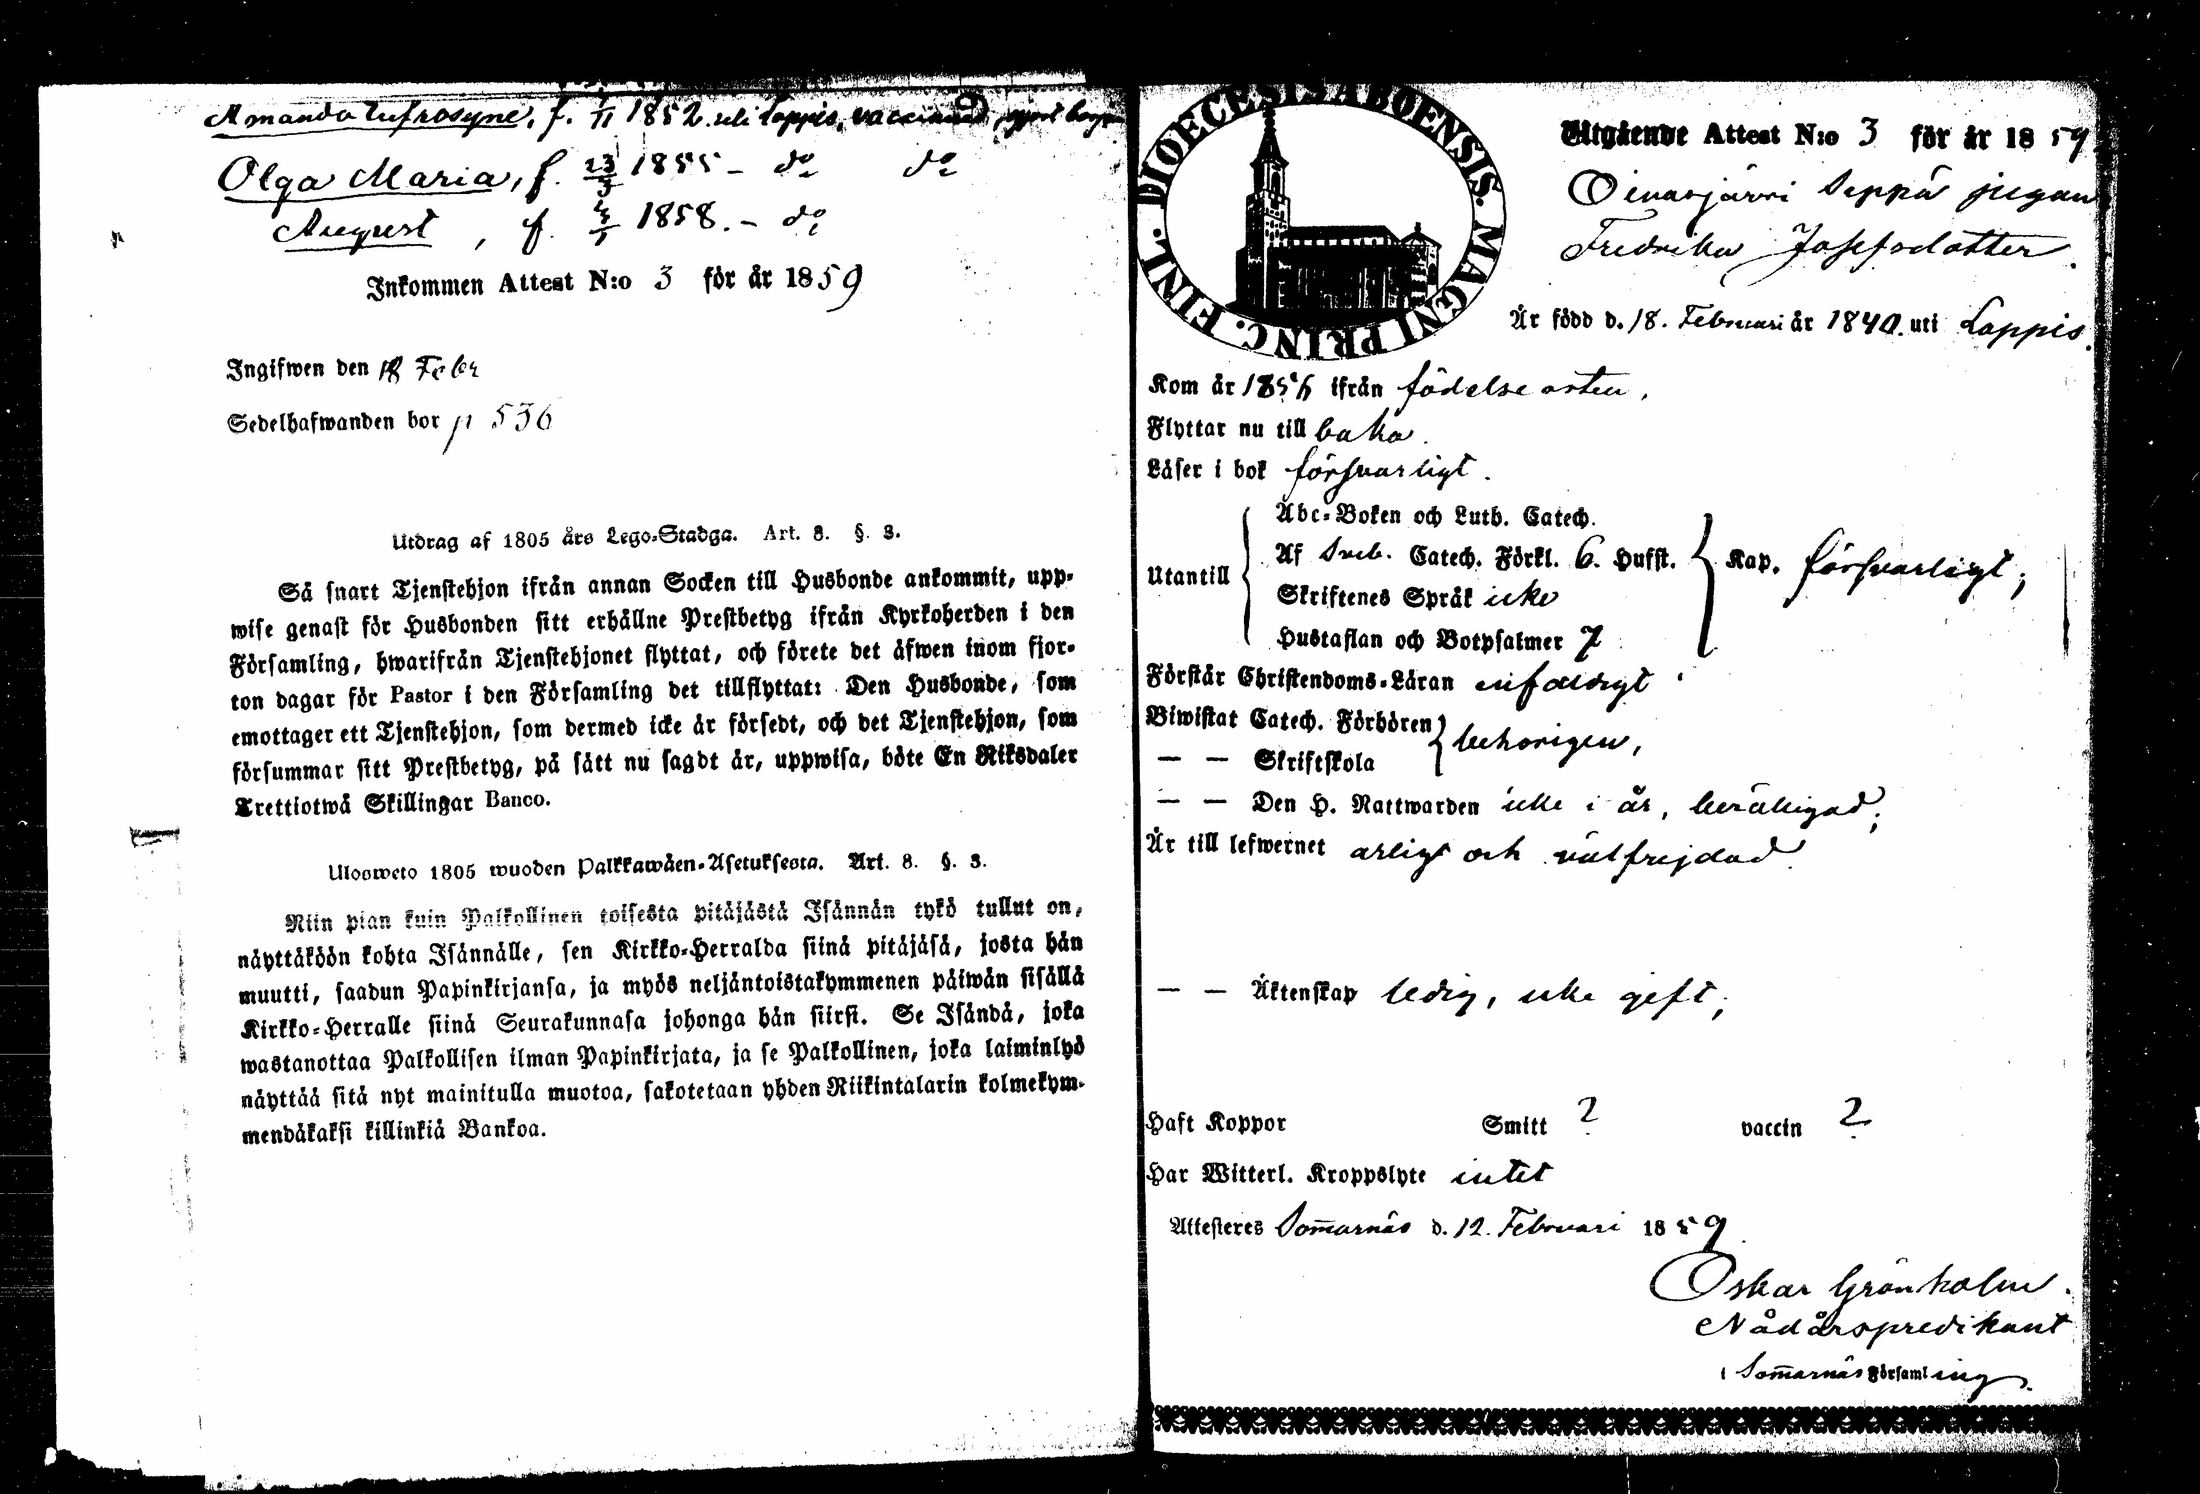 Amanda Eufrosyne, f. 1/11 1852. uti Lappis, vaccinerad,
Olga Maria, f. 23/3 1855 – do do
August, f. 1858. – do
Inkommen Attest N:o 3 för år 1859
Ingifwen den 18 Febr
Sedelhafwanden bor p 536
Utdrag af 1805 års Lego-Stadga. Art. 8. §. 3.
Så snart Tjenstehjon ifrån annan Socken till Husbonde ankommit, upp-
wise genast för Husbonden sitt erhållne Prestbetyg ifrån Kyrkoherden i den
Församling, hwarifrån Tjenstehjonet flyttat, och förete det äfwen inom fjor-
ton dagar för Pastor i den Församling det tillflyttat: Den Husbonde, som
emottager ett Tjenstehjon, som dermed icke är försedt, och det Tjenstehjon, som
försummar sitt Prestbetyg, på sätt nu sagdt är, uppwisa, böte En Riksdaler
Trettiotwå Skillingar Banco.
Ulosweto 1805 wuoden Palkkawäen-Asetuksesta. Art. 8. §. 3.
Niin pian kuin Palkollinen toisesta pitäjästä Isännän tykö tullut on,
näyttäköön kohta Isännälle, sen Kirkko-Herralda siinä pitäjäsä, josta hän
muutti, saadun Papinkirjansa, ja myös neljäntoistakymmenen päiwän sisällä
Kirkko-Herralle siinä Seurakunnasa johonga hän siirsi. Se Isändä, joka
wastanottaa Palkollisen ilman Papinkirjata, ja se Palkollinen, joka laiminlyö
näyttää sitä nyt mainitulla muotoa, sakotetaan yhden Riikintalarin kolmekym-
mendäkaksi killinkiä Bankoa.
DIOECESIS ABOENSIS. MAGNI PRINC. FINL.
Utgående Attest N:o 3 för år 1859
Oinasjärvi Seppä pigan
Fredrika Josefsdotter.
Är född d. 18. Februari år 1840. uti Lappis.
Kom år 185 ifrån födelse orten,
Flyttar nu till baka.
Läser i bok försvarligt.
Utantill
Abc-Boken och Luth. Catech.
Af Sveb. Catech. Förkl. 6. Hufst. Kap. försvarligt;
Skriftenes Språk icke
Hustaflan och Botpsalmer 7
Förstår Christendoms-Läran enfaldigt
Biwistat Catech. Förhören behörigen,
— — Skriftskola
— — Den H. Nattwarden icke i år, beräkigad;
Är till lefwernet ärligt och välfrejdad.
— — Äktenskap ledig, icke gift;
Haft Koppor Smitt ? vaccin ?
Har Witterl. Kroppslyte intet
Attesteres Som̄arnäs d. 12. Februari 1859
Oskar Grönholm.
Nådårspredikant
i Som̄arnäs Församling.